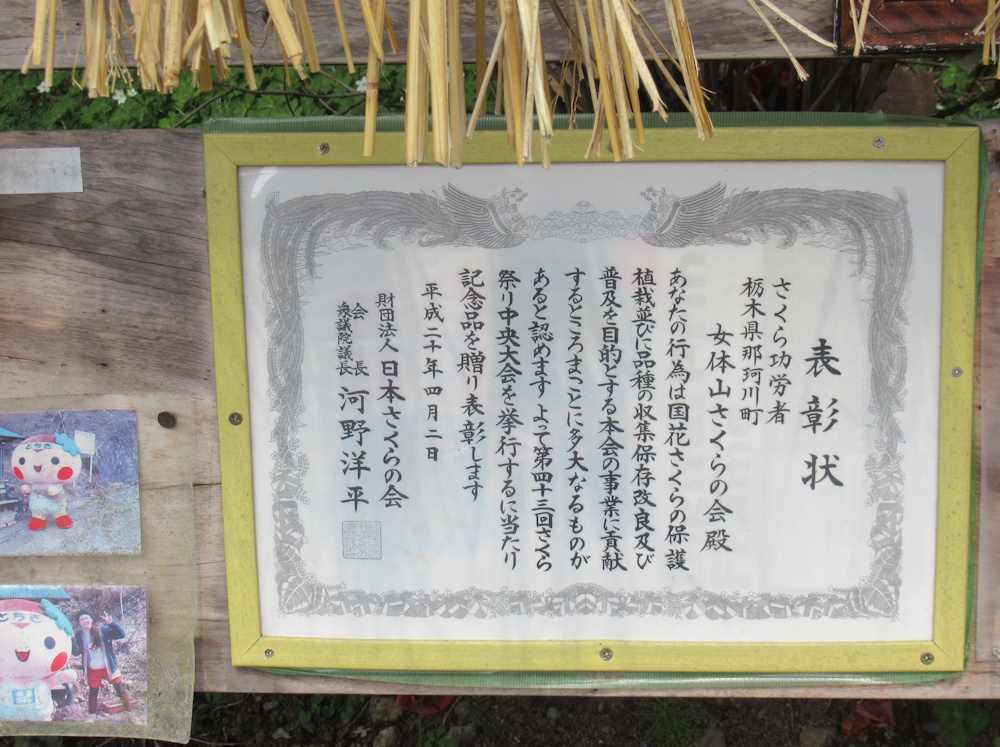 表彰状
さくら功労者
栃木県那珂川町
女体山さくらの会殿
あなたの行為は国花さくらの保護
植栽並びに品種の収集保存改良及び
普及を目的とする本会の事業に貢献
するところまことに多大なるものが
あると認めます よって第四十三回さくら
祭り中央大会を挙行するに当たり
記念品を贈り表彰します
平成二十年四月二日
財団法人 日本さくらの会
会長
衆議院議長 河野洋平
とちぎ